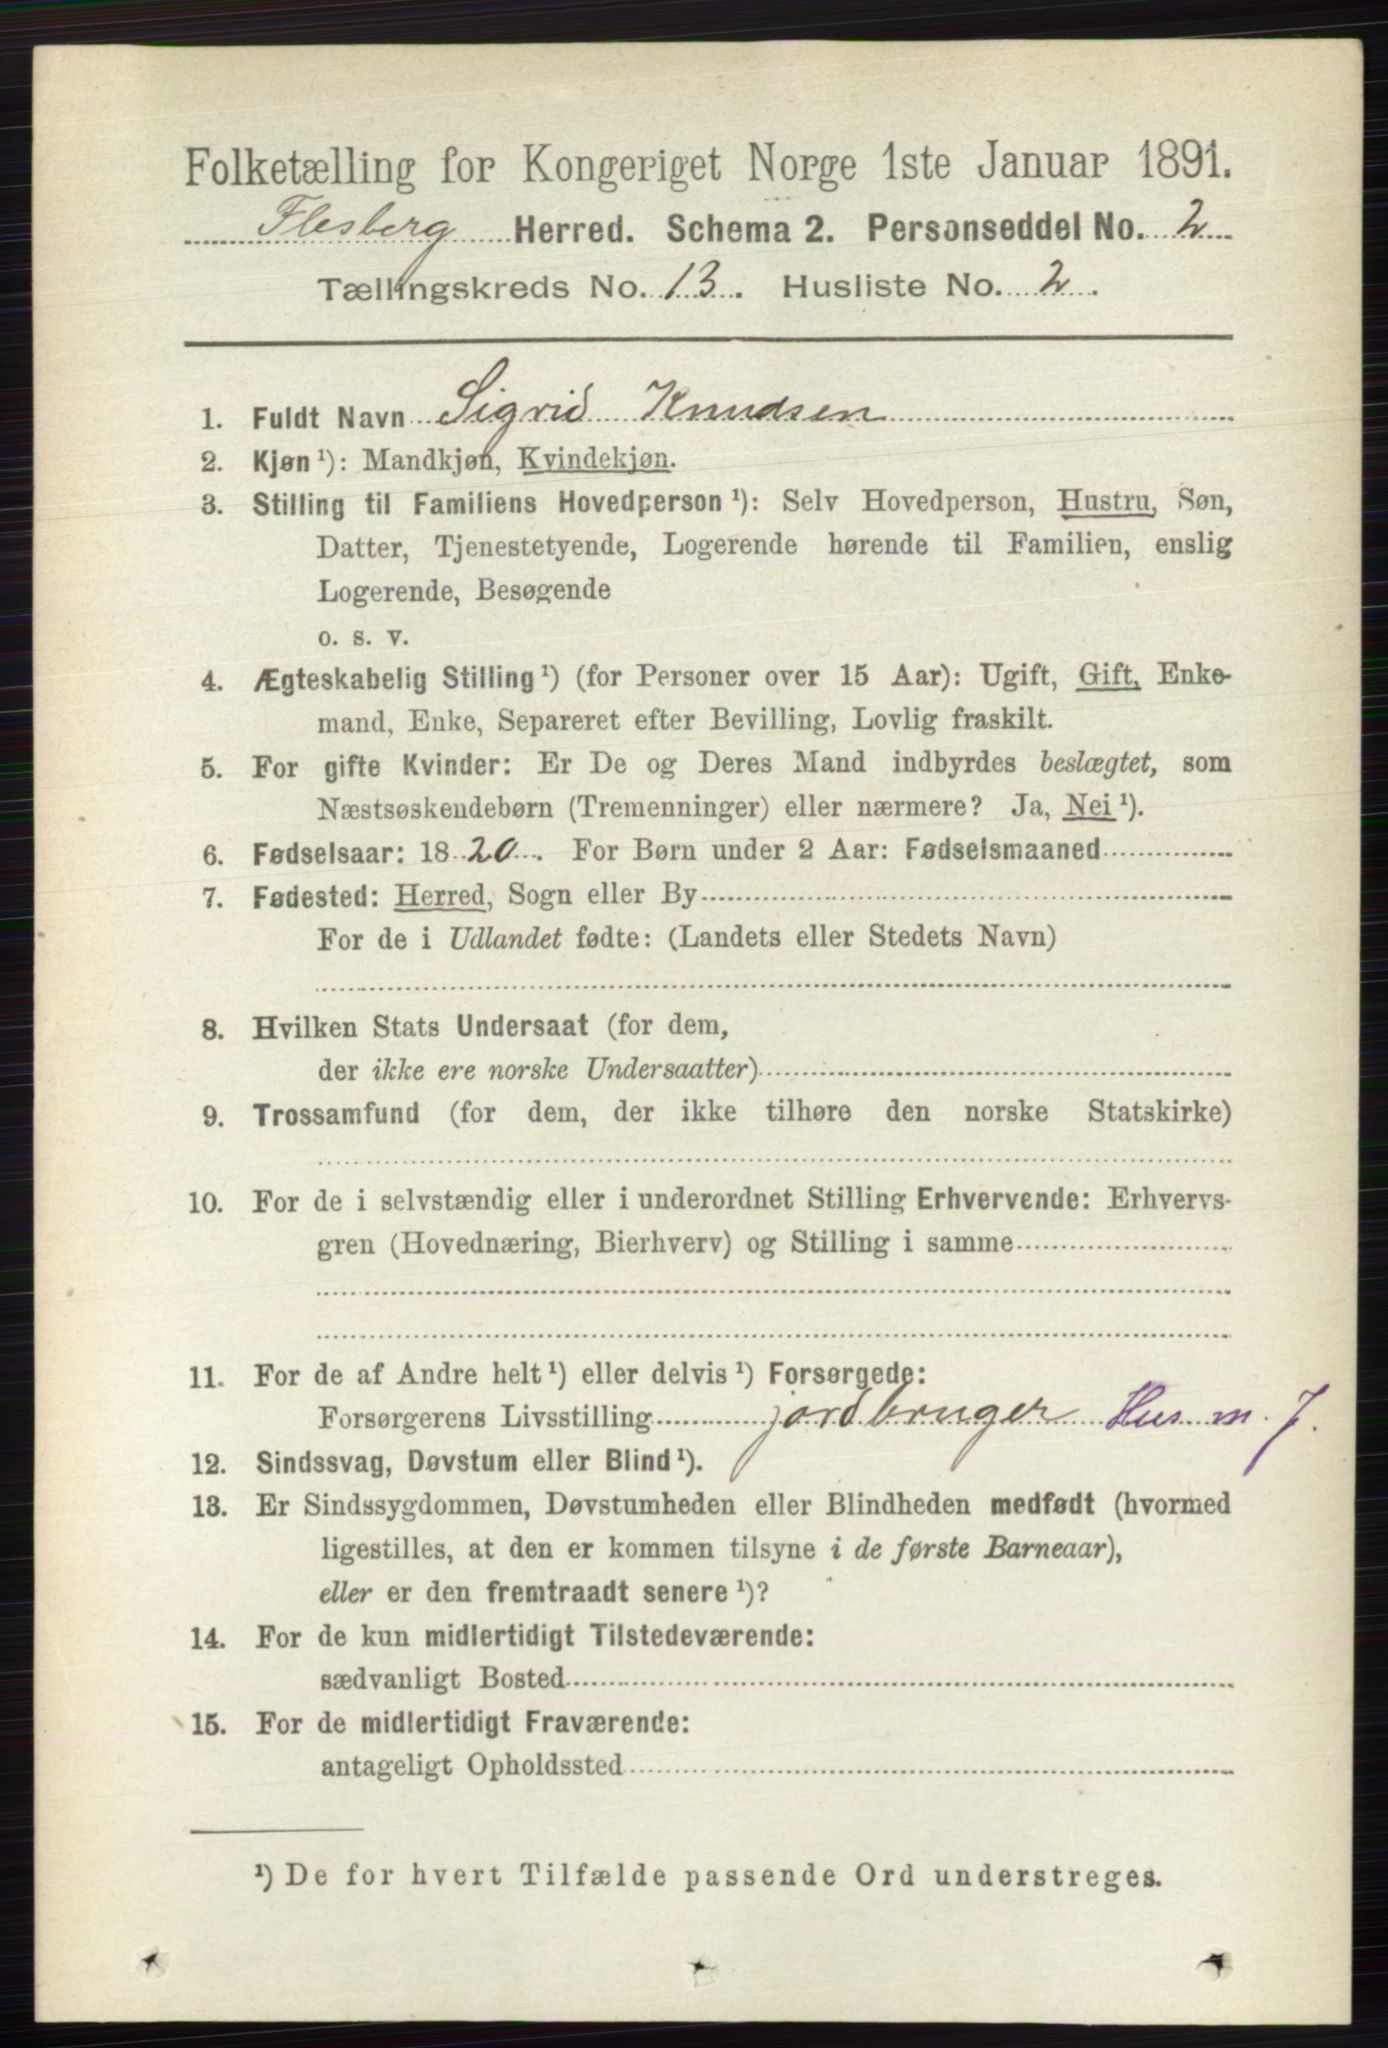 Folketælling for Kongeriget Norge 1ste Januar 1891.
Flesberg Herred. Schema 2. Personseddel No. 2
Tællingskreds No. 13. Husliste No. 2.
1. Fuldt Navn Sigrid Knudsen
2. Kjøn ¹): Mandkjøn, Kvindekjøn.
3. Stilling til Familiens Hovedperson ¹): Selv Hovedperson, Hustru, Søn,
Datter, Tjenestetyende, Logerende hørende til Familien, enslig
Logerende, Besøgende
o. s. v.
4. Ægteskabelig Stilling ¹) (for Personer over 15 Aar): Ugift, Gift, Enke-
mand, Enke, Separeret efter Bevilling, Lovlig fraskilt.
5. For gifte Kvinder: Er De og Deres Mand indbyrdes beslægtet, som
Næstsøskendebørn (Tremenninger) eller nærmere? Ja, Nei ¹).
6. Fødselsaar: 1820. For Børn under 2 Aar: Fødselsmaaned
7. Fødested: Herred, Sogn eller By
For de i Udlandet fødte: (Landets eller Stedets Navn)
8. Hvilken Stats Undersaat (for dem,
der ikke ere norske Undersaatter)
9. Trossamfund (for dem, der ikke tilhøre den norske Statskirke)
10. For de i selvstændig eller i underordnet Stilling Erhvervende: Erhvervs-
gren (Hovednæring, Bierhverv) og Stilling i samme
11. For de af Andre helt ¹) eller delvis ¹) Forsørgede:
Forsørgerens Livsstilling jordbruger Hus m. J.
12. Sindssvag, Døvstum eller Blind ¹).
13. Er Sindssygdommen, Døvstumheden eller Blindheden medfødt (hvormed
ligestilles, at den er kommen tilsyne i de første Barneaar),
eller er den fremtraadt senere ¹)?
14. For de kun midlertidigt Tilstedeværende:
sædvanligt Bosted
15. For de midlertidigt Fraværende:
antageligt Opholdssted
¹) De for hvert Tilfælde passende Ord understreges.